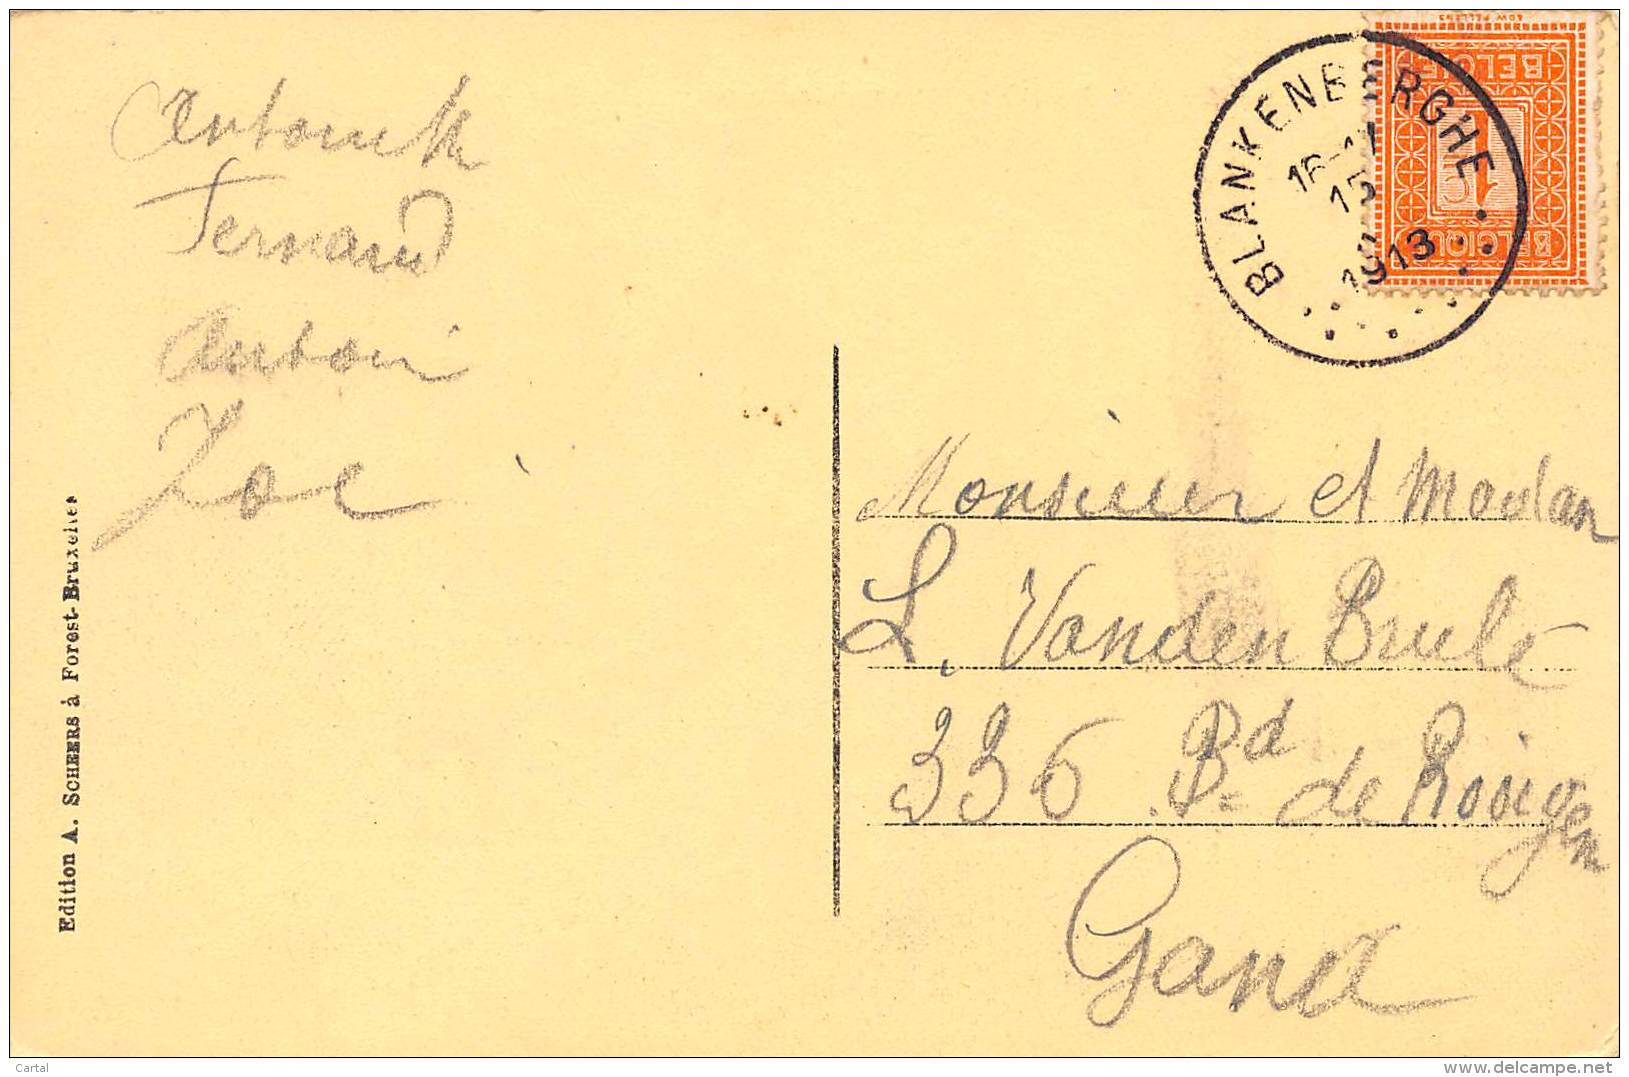 Antoinette
Fernand
Antoin
Zoé
Edition A. SCHEERS à Forest-Bruxelles
BLANKENBERGHE
16-17
15
1913
BELGIE
1 C
BELGIQUE
Monsieur et Madan
L. Vanden Brulé
336 Bd de Rouigen
Gand
Cartal
www.delcampe.net